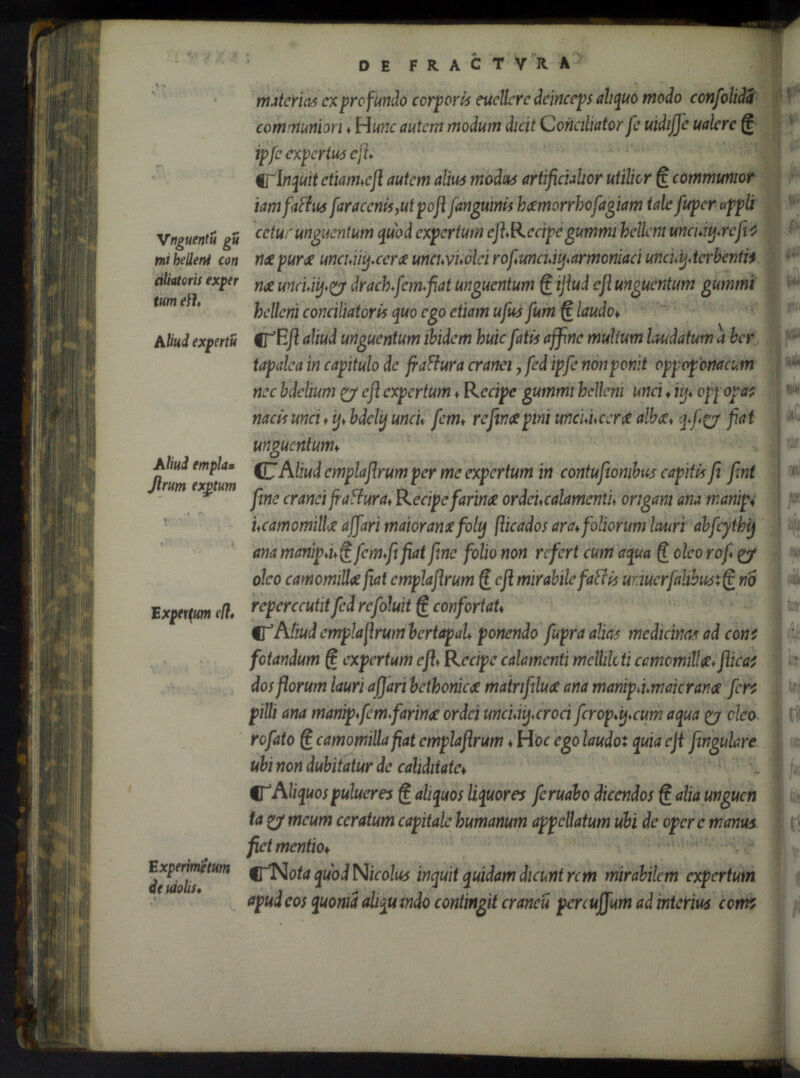 DE FRACTVRA
materias ex profundo corporis euellere deinceps aliquo modo consolidã
communiori. Hunc autem modum dicit Conciliator se uidisse ualere &
ipse expertus est.
¶ Inquit etiam.est autem alius modus artificialior utilior & communior
iam factus saracenis,ut post sanguinis hæmorrhosagiam tale super appli
cetur unguentum quod expertum est.Recipe gummi helleni unci.iij.resi=
næ puræ unci.iiij.ceræ unci.vi.olei ros.unci.iij.armoniaci unci.ij.terbenti=
næ unci.iij.& drach.sem.fiat unguentum & istud est unguentum gummi
helleni conciliatoris quo ego etiam usus sum & laudo.
¶ Est aliud unguentum ibidem huic satis affine multum laudatum à ber
tapalea in capitulo de fractura cranei, sed ipse non ponit oppoponacum
nec bdelium & est expertum. Recipe gummi helleni unci. iij. opp opa=
nacis unci. ij. bdelij unci. sem. resinæ pini unci.i.ceræ albæ. q.s.& fiat
unguentum.
¶ Aliud emplastrum per me expertum in contusionibus capitis si sint
sine cranei fractura. Recipe farinæ ordei.calamenti. origani ana manip.
i.camomillæ assari maioranæ folij sticados ara.foliorum lauri abscythij
ana manip.i.& sem.si fiat sine folio non refert cum aqua & oleo ros. &
oleo camomillæ fiat emplastrum & est mirabile factis uniuersalibus:& nõ
repercutit sed resoluit & confortat.
¶ Aliud emplastrum bertapal. ponendo supra alias medicinas ad con=
fotandum & expertum est. Recipe calamenti melliloti camomillæ. stica=
dos florum lauri assari bethonicæ matrisiluæ ana manip.i.maioranæ ser=
pilli ana manip.sem.farinæ ordei unci.iij.croci scrop.ij.cum aqua & oleo
rosato & camomilla fiat emplastrum. Hoc ego laudo: quia est singulare
ubi non dubitatur de caliditate.
¶ Aliquos pulueres & aliquos liquores seruabo dicendos & alia unguen
ta & meum ceratum capitale humanum appellatum ubi de opere manus
fiet mentio.
¶ Nota quod Nicolus inquit quidam dicunt rem mirabilem expertum
apud eos quoniã aliquando contingit craneũ percussum ad interius com=
Vnguentũ gũ
mi helleni con
ciliatoris exper
tum est.
Aliud expertũ
Aliud empla=
strum exptum
Expertum est.
Experimẽtum
de uiolis.